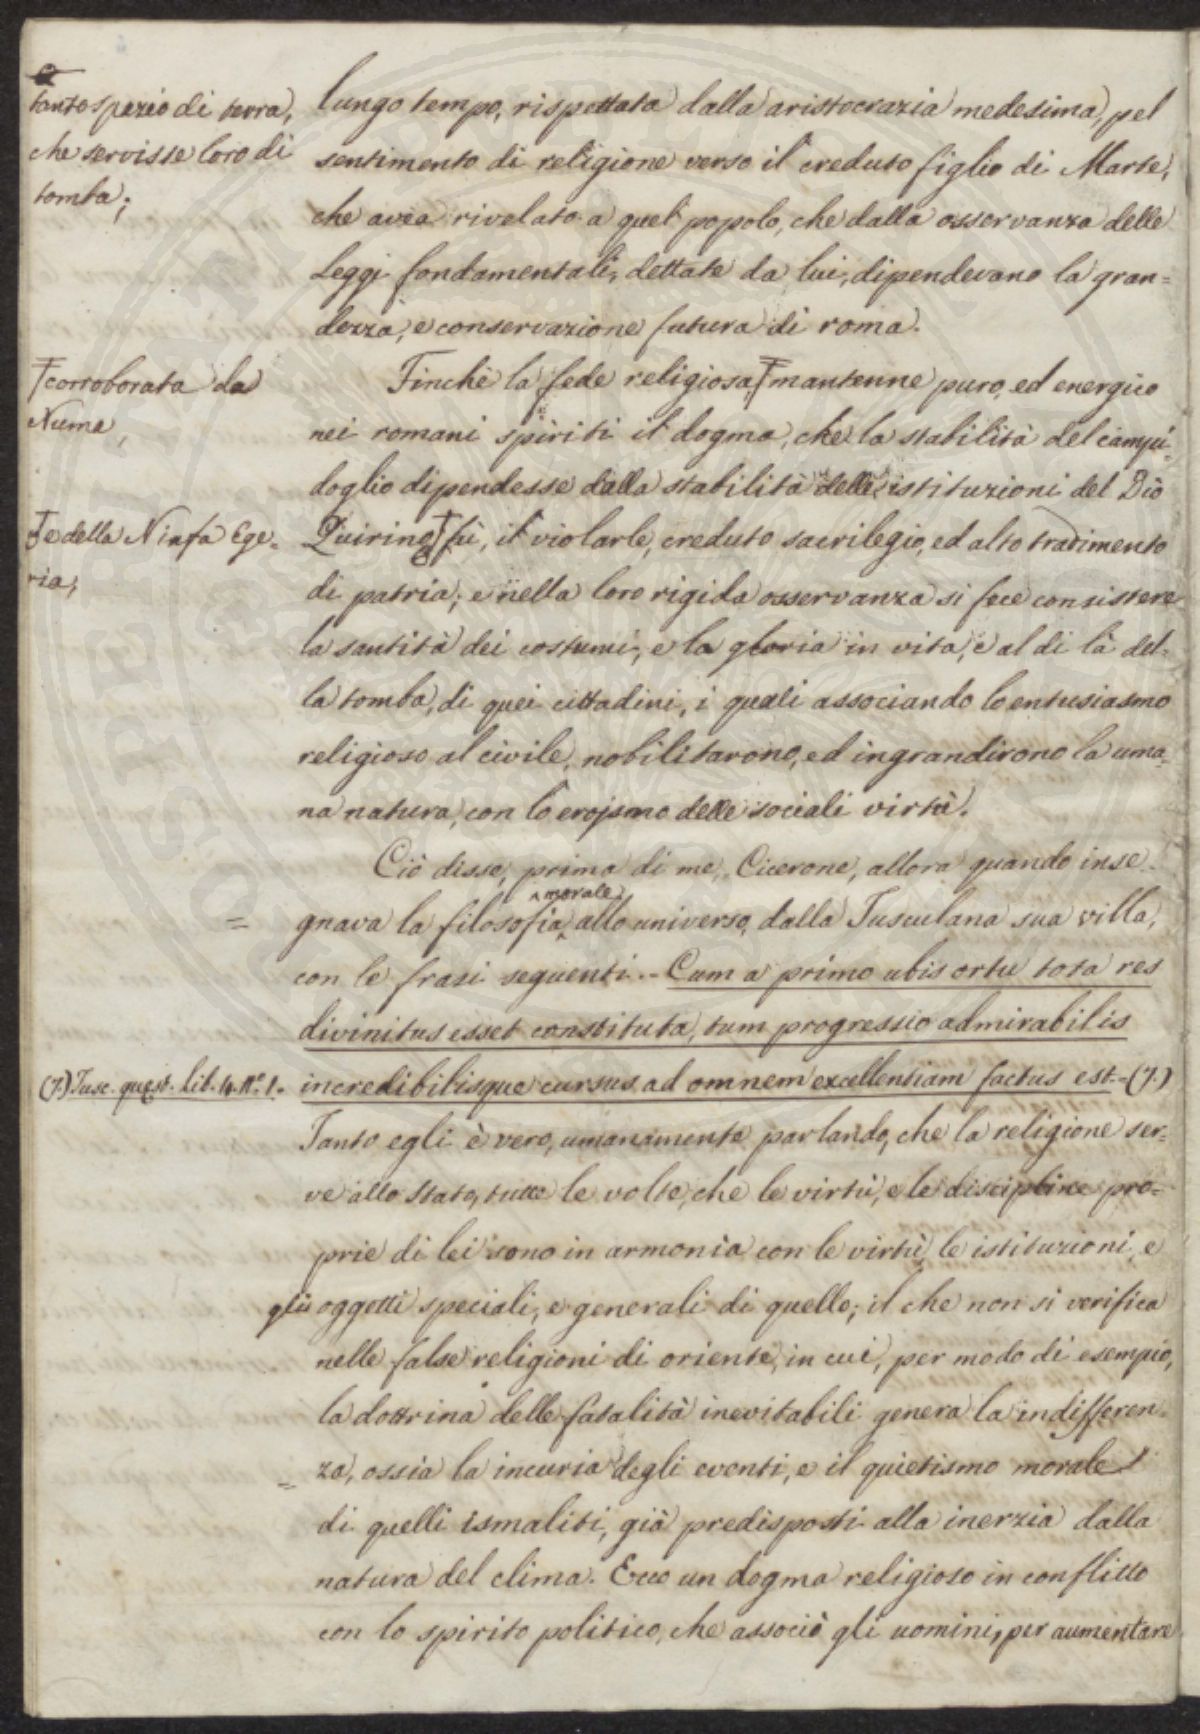 tanto spazio di terra,
che servisse loro di
tomba;
lungo tempo, rispettata dalla aristocrazia medesima, pel
sentimento di religione verso il creduto figlio di Marte,
che avea rivelato a quel popolo, che dalla osservanza delle
Leggi fondamentali, dettate da lui, dipendevano la gran=
dezza, e conservazione futura di roma.
corroborata da
Numa,
Finchè la fede religiosa, mantenne puro, ed energico
nei romani spiriti il dogma, che la stabilità del campi=
doglio dipendesse dalla stabilità delle istituzioni del Dio
e della Ninfa Ege=
ria;
Quirino fù, il violarle, creduto sacrilegio, ed alto tradimento
di patria; e nella loro rigida osservanza si fece consistere
la santità dei costumi, e la gloria in vita, e al di là del=
la tomba, di quei cittadini, i quali associando lo entusiasmo
religioso al civile, nobilitarono, ed ingrandirono la uma=
na natura, con lo erojsmo delle sociali virtù.
Ciò disse, prima di me, Cicerone, allora quando inse=
morale
= gnava la filosofia, allo universo, dalla Tusculana sua villa,
con le frasi seguenti.- Cum a primo ubis ortu tota res
divinitus esset constituta, tum progressio admirabilis
(7.) Tusc. quest. lib. 4. n.° 1.
incredibilisque cursus ad omnem excellentiam factus est.- (7.)
Tanto egli è vero, umanamente parlando, che la religione ser=
ve allo stato, tutte le volte, che le virtù, e le discipline pro=
prie di lei sono in armonia con le virtù, le istituzioni, e
gli oggetti speciali, e generali di quello; il che non si verifica
nelle false religioni di oriente, in cui, per modo di esempio,
la dottrina delle fatalità inevitabili genera la indifferen=
= za, ossia la incuria degli eventi, e il quietismo morale
di quelli ismaliti, già predisposti alla inerzia dalla
natura del clima. Ecco un dogma religioso in conflitto
con lo spirito politico, che associò gli uomini, per aumentare